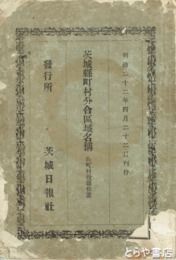 明治二十二年四月二十二日刊行
茨城縣町村分合區域名稱
發行所 茨城日報社
とらや書店